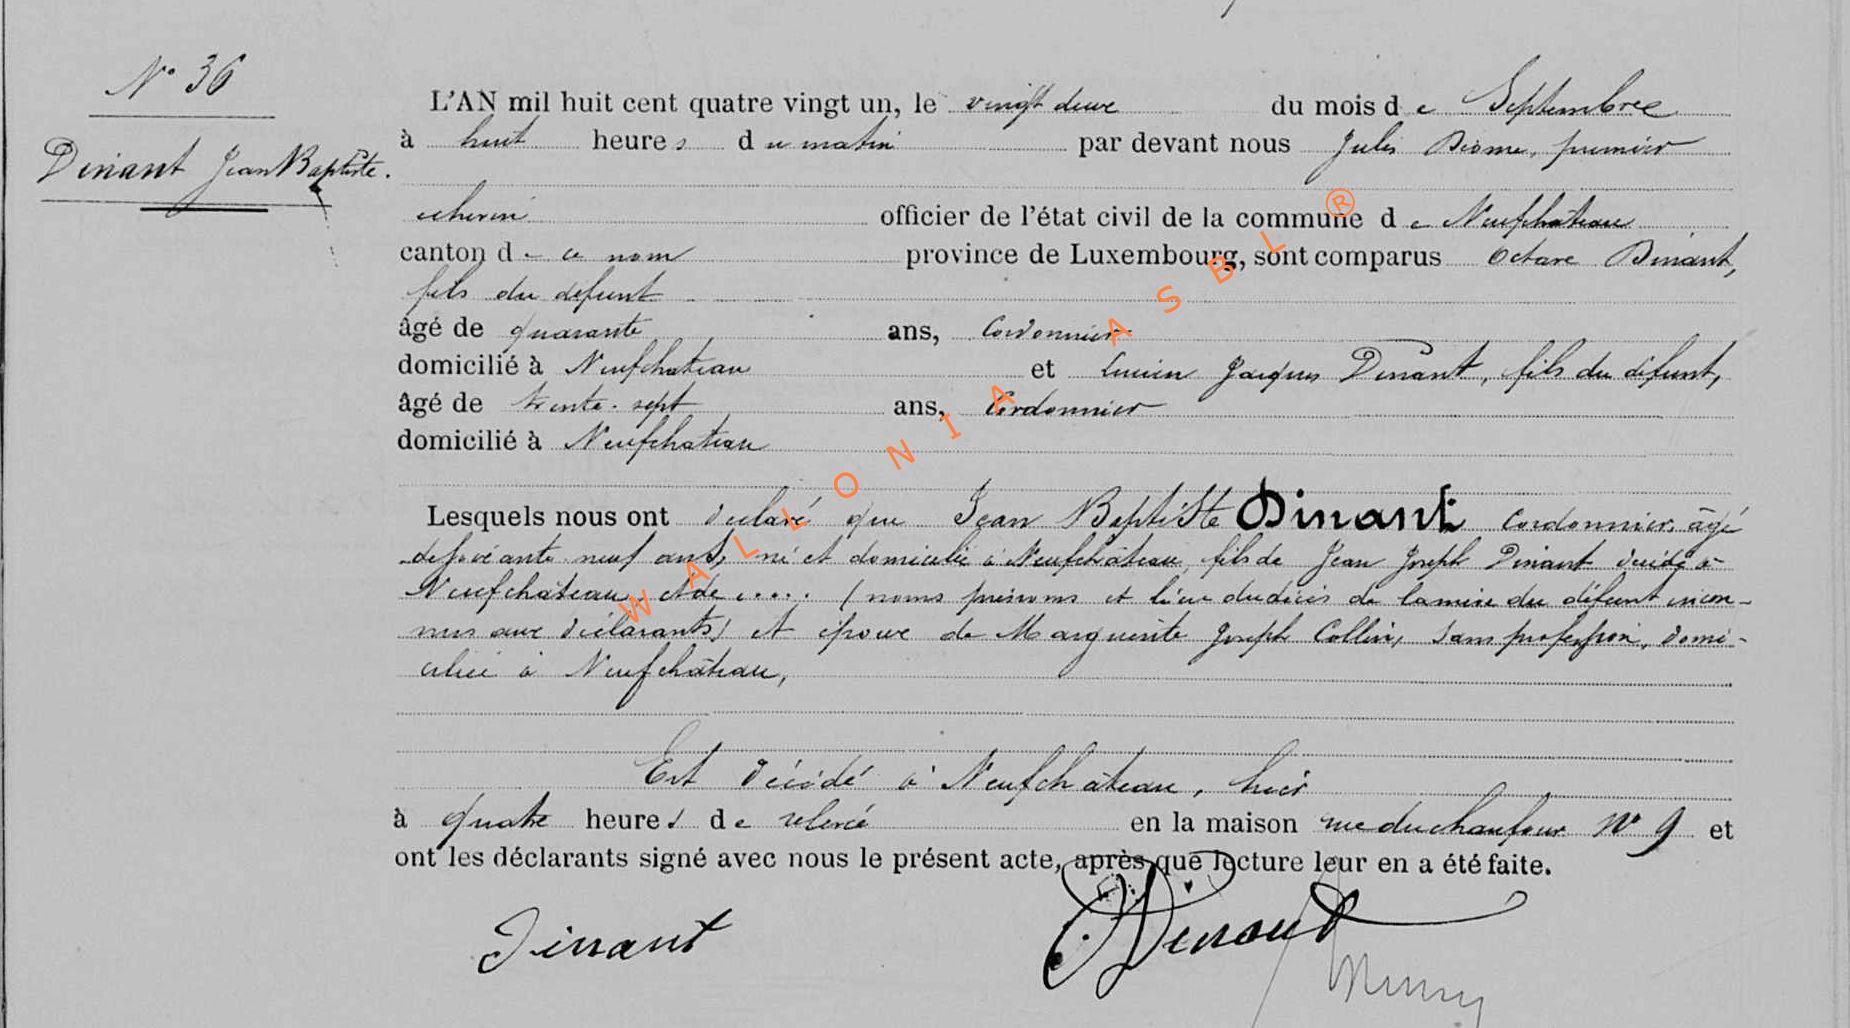 N° 36
Dinant Jean Baptiste.
L'AN mil huit cent quatre vingt un, le vingt deux du mois de Septembre
à huit heures du matin par devant nous Jules premier
échevin officier de l'état civil de la commune de Neufchâteau
canton de ce nom province de Luxembourg, sont comparus Octave Dinant,
fils du défunt
âgé de quarante ans, Cordonnier
domicilié à Neufchateau et Lucien Jacques Dinant, fils du défunt,
âgé de trente-sept ans, Cordonnier
domicilié à Neufchateau
Lesquels nous ont déclaré que Jean Baptiste Dinant Cordonnier, âgé
de soixante neuf ans, né et domicilié à Neufchâteau, fils de Jean Joseph Dinant décédé à
Neufchâteau, et de ..... (noms prénoms et lieu du décès de la mère du défunt incon-
nus aux déclarants) et époux de Marguerite Joseph Collin, sans profession, domi-
ciliée à Neufchâteau,
Est décédé à Neufchâteau, hier
à quatre heures de relevée en la maison rue du chaufour N° 9 et
ont les déclarants signé avec nous le présent acte, après que lecture leur en a été faite.
Dinant
Dinant
WALLONIA ASBL ®